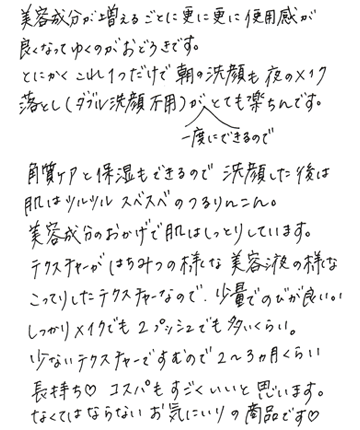 美容成分が増えるごとに更に更に使用感が
良くなってゆくのがおどろきです。
とにかくこれ1つだけで朝の洗顔も夜のメイク
落とし(ダブル洗顔不用)がとても楽ちんです。
一度にできるので
角質ケアと保湿もできるので洗顔した後は
肌はツルツルスベスベのつるりんこん。
美容成分のおかげで肌はしっとりしています。
テクスチャーがはちみつの様な美容液の様な
こってりしたテクスチャーなので、少量でのびが良い。
しっかりメイクでも2プッシュでも多いくらい。
少ないテクスチャーですむので2〜3ヵ月くらい
長持ち♡ コスパもすごくいいと思います。
なくてはならないお気にいりの商品です♡